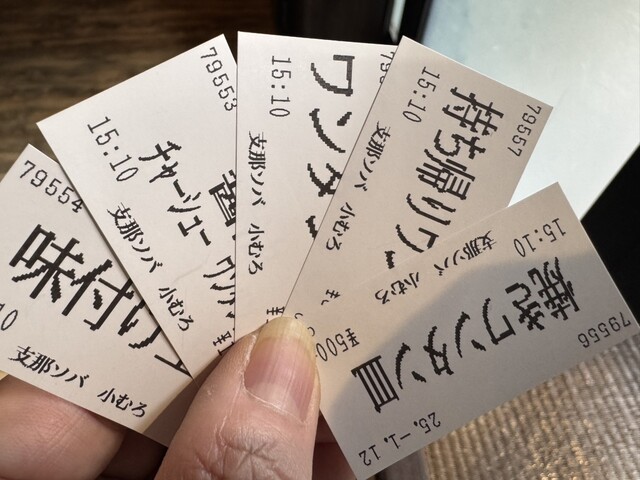 79554
味付け
支那ソバ 小むろ
79553
15:10
チャーシュー
ワンタン
支那ソバ 小むろ
15:10
ワンタン
支那ソバ 小むろ
79557
15:10
持ち帰りワ
支那ソバ 小むろ
¥500
79556
15:10
焼きワンタン皿
支那ソバ 小むろ
25.-1.12